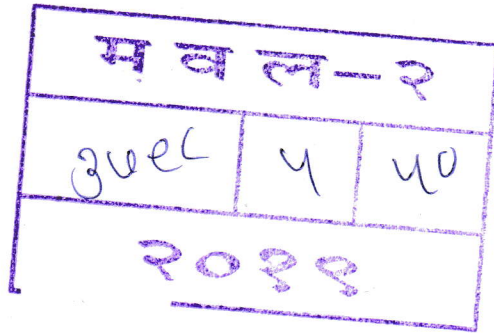 म व ल-२
३७९८ ५ ५०
२०१९